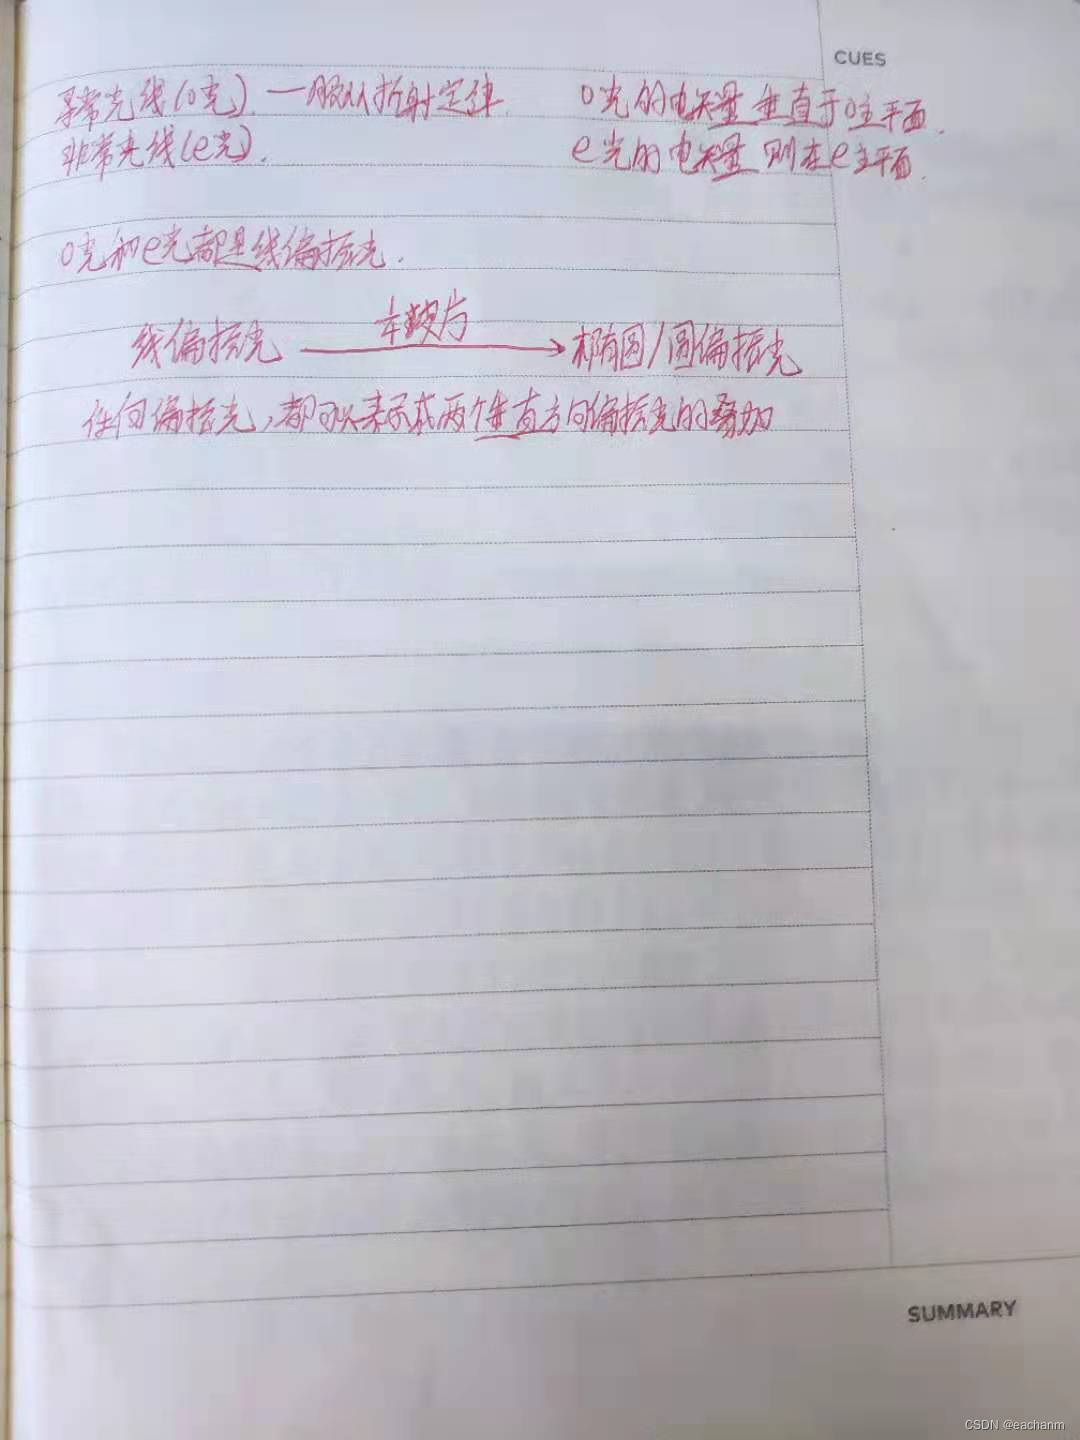 CUES
寻常光线(o光). —服从折射定律. o光的电矢量垂直于o主平面.
非常光线(e光). e光的电矢量则在e主平面.
o光和e光都是线偏振光.
线偏振光 → 椭圆/圆偏振光
任何偏振光,都可以表示成两个垂直方向偏振光的叠加
SUMMARY
CSDN @eachanm